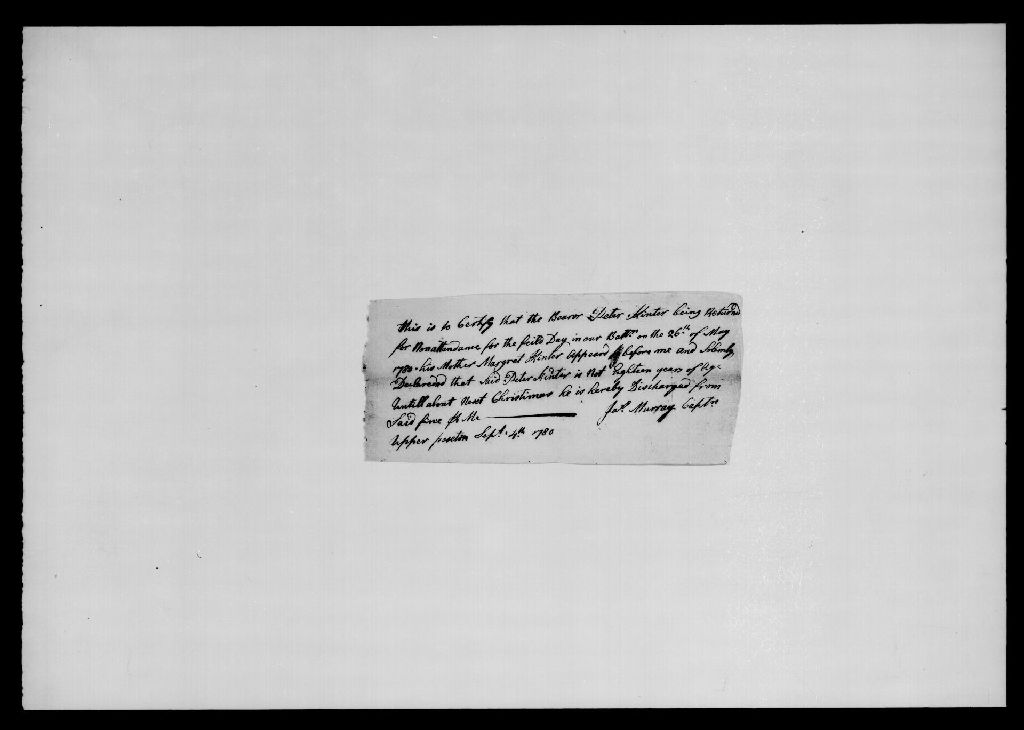 This is to Certify that the Bearer Peter Kinter being Returnd
for Nonattendance for the feild Day in our Battn on the 26th of May
1780 his Mother Margret Kinter Appeard before me and Solemnly
Declareded that Said Peter Kinter is Not Eighteen years of Age
Untill about Next Christimas he is hereby Discharged from
Said fine Me
Upper paxton Sept. 4th 1780
Jas. Murray Captn